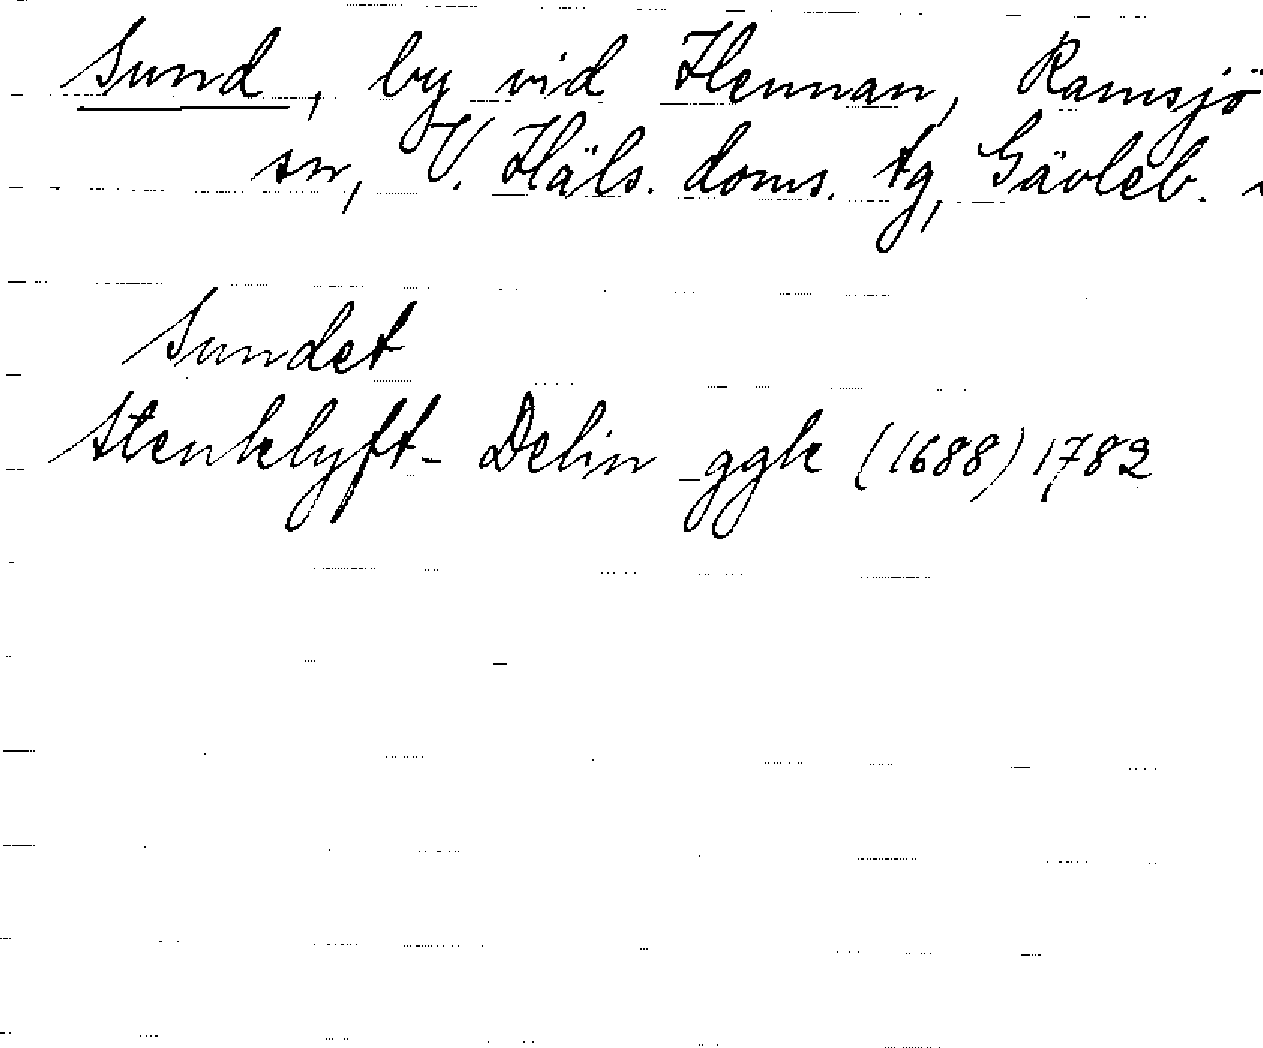 Sund, by vid Hennan, Ramsjö
sn, V. Häls. doms. tg, Gävleb.
Sundet
Stenklyft- Delin ggk (1688) 1782